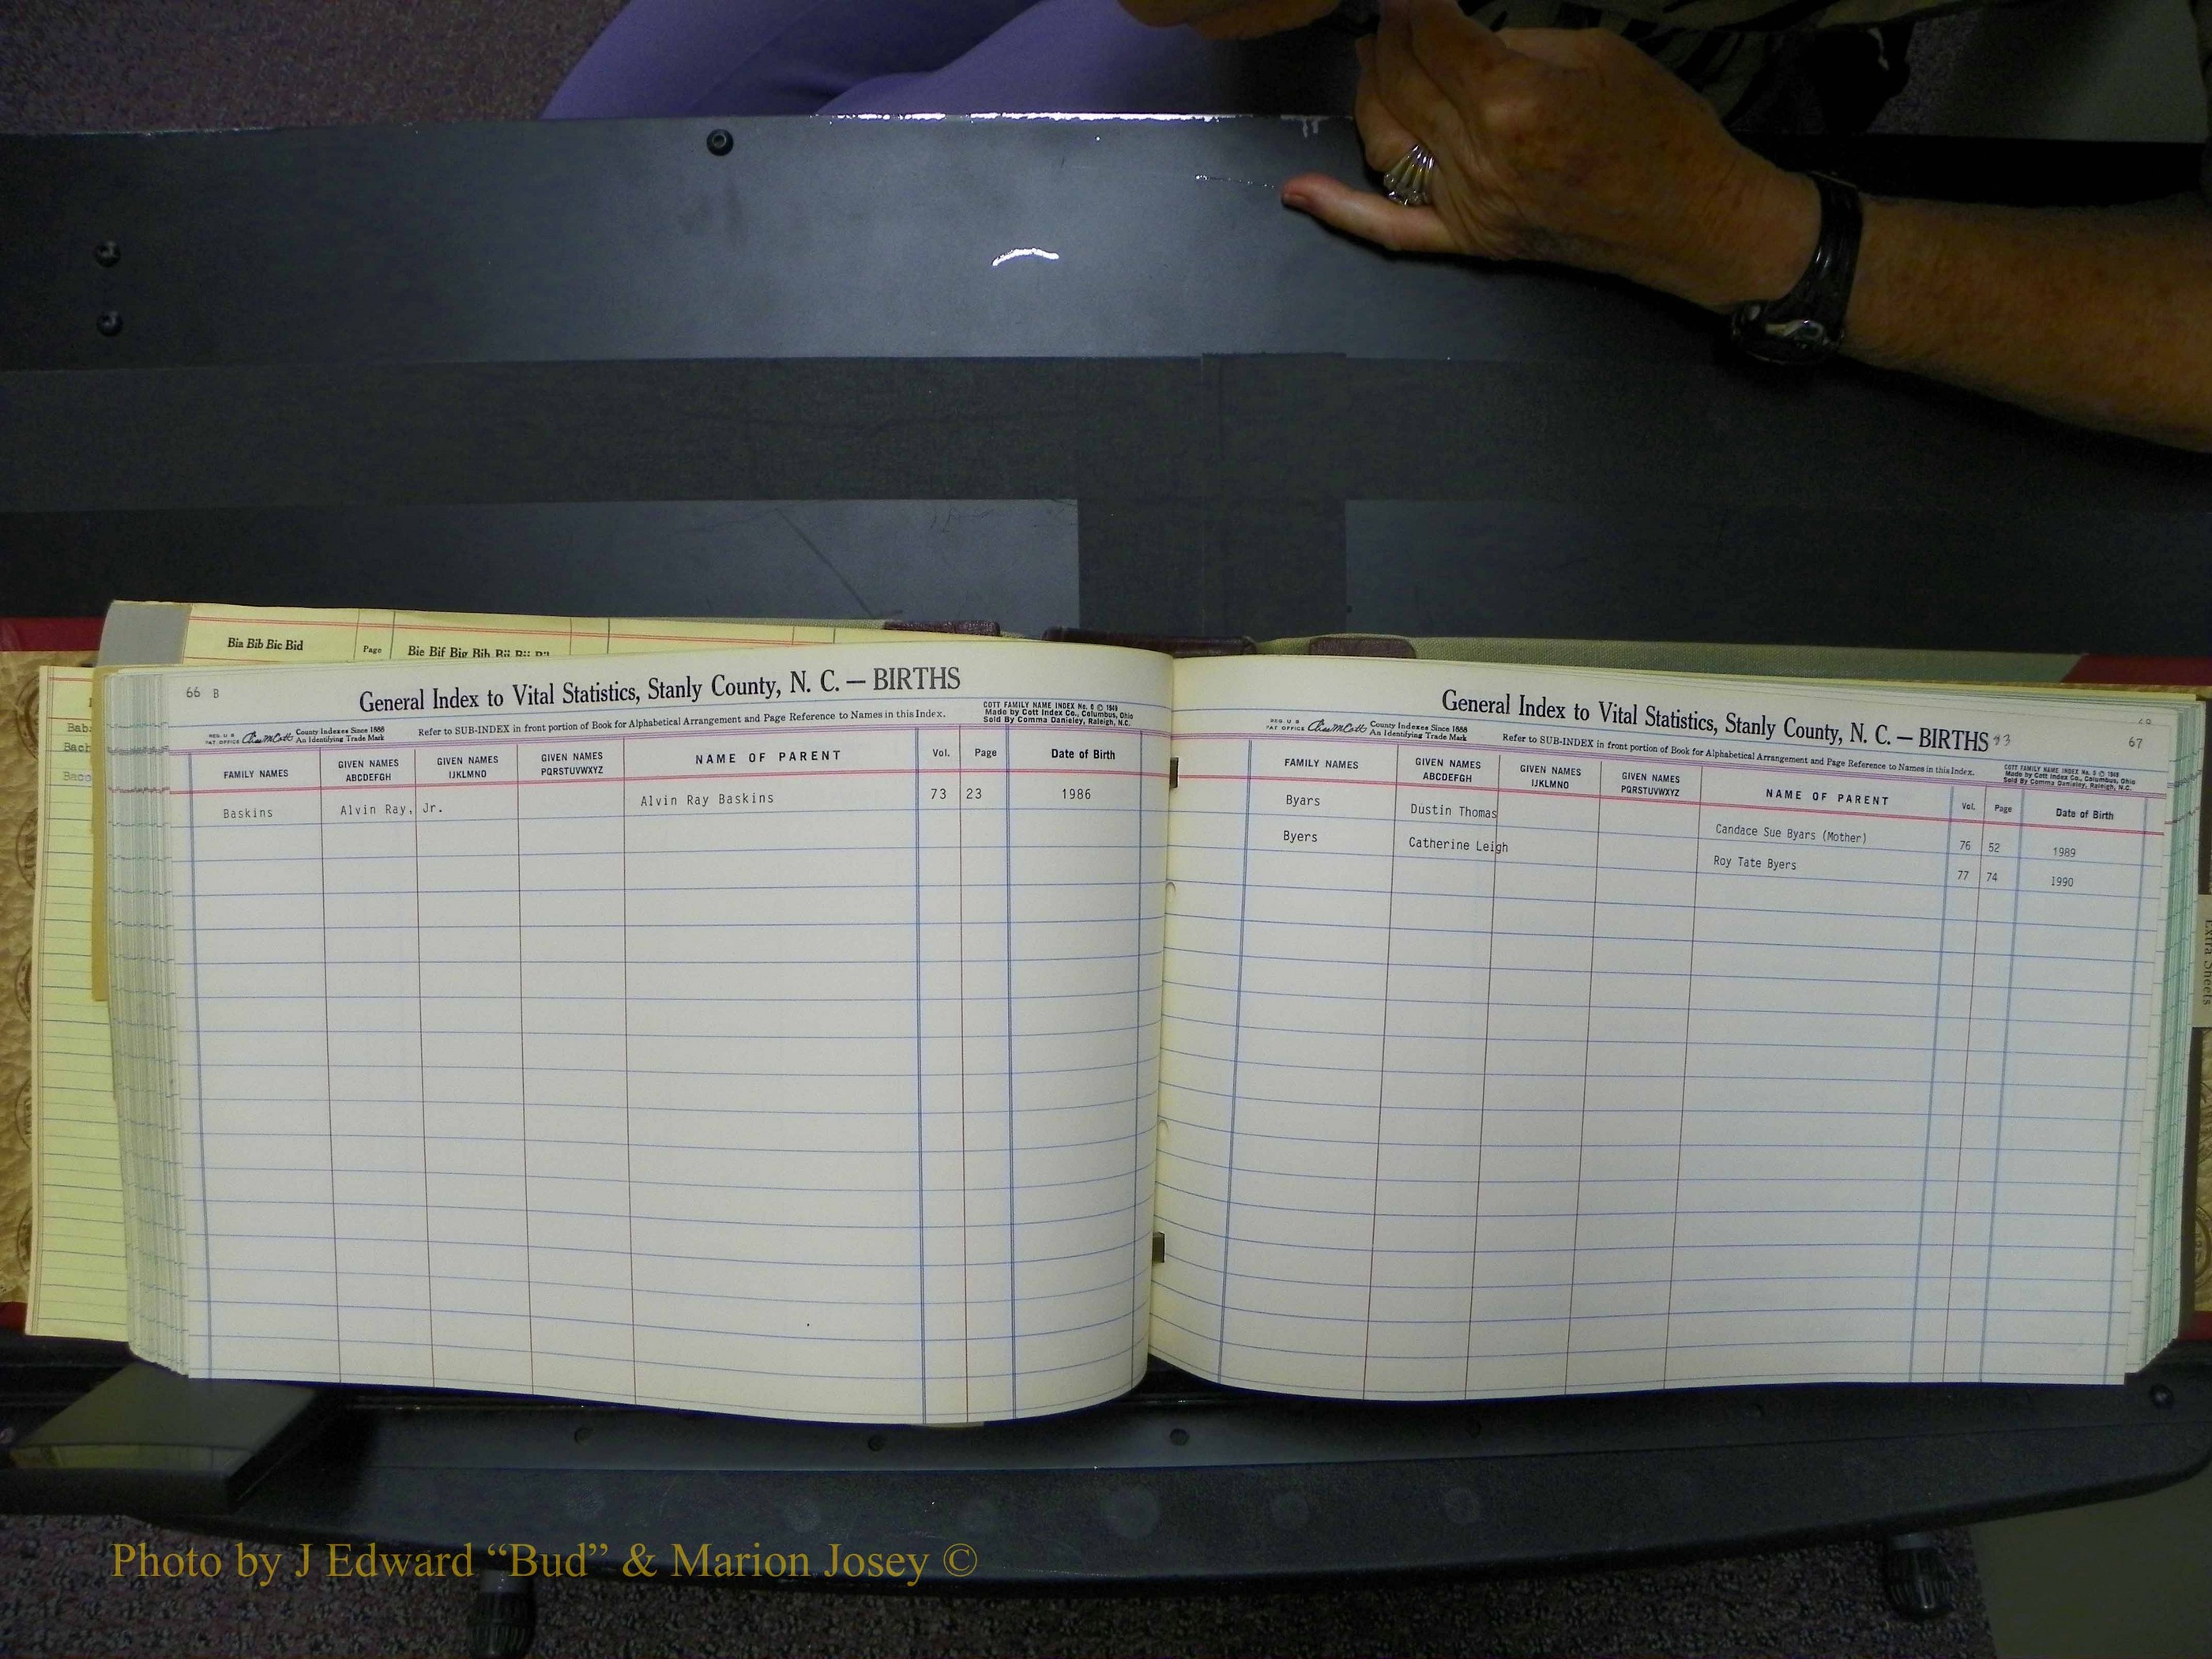 Bia Bib Bic Bid Page Bie Bif Big Bih Bii Bij
Bab
Bach
Baco
66 B
General Index to Vital Statistics, Stanly County, N. C. — BIRTHS
REG. U S
PAT OFFICE
County Indexes Since 1888
An Identifying Trade Mark
Refer to SUB-INDEX in front portion of Book for Alphabetical Arrangement and Page Reference to Names in this Index.
COTT FAMILY NAME INDEX No. 0 © 1949
Made by Cott Index Co., Columbus, Ohio
Sold By Comma Danieley, Raleigh, N.C.
FAMILY NAMES GIVEN NAMES ABCDEFGH GIVEN NAMES IJKLMNO GIVEN NAMES PQRSTUVWXYZ NAME OF PARENT Vol. Page Date of Birth
Baskins Alvin Ray, Jr. Alvin Ray Baskins 73 23 1986
General Index to Vital Statistics, Stanly County, N. C. — BIRTHS
67
REG. U S
PAT OFFICE
County Indexes Since 1888
An Identifying Trade Mark
Refer to SUB-INDEX in front portion of Book for Alphabetical Arrangement and Page Reference to Names in this Index.
COTT FAMILY NAME INDEX No. 0 © 1949
Made by Cott Index Co., Columbus, Ohio
Sold By Comma Danieley, Raleigh, N.C.
FAMILY NAMES GIVEN NAMES ABCDEFGH GIVEN NAMES IJKLMNO GIVEN NAMES PQRSTUVWXYZ NAME OF PARENT Vol. Page Date of Birth
Byars Dustin Thomas Candace Sue Byars (Mother) 76 52 1989
Byers Catherine Leigh Roy Tate Byers 77 74 1990
Extra Sheets
Photo by J Edward “Bud” & Marion Josey ©